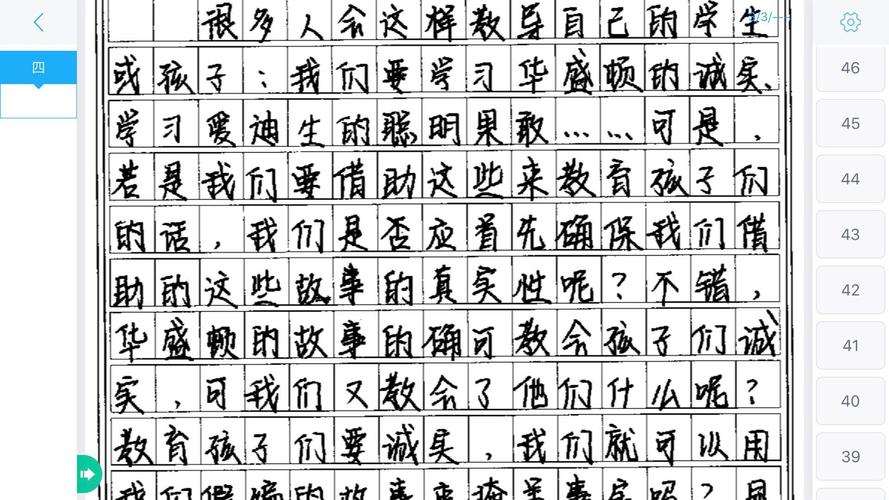 很多人会这样教导自己的学生
或孩子：我们要学习华盛顿的诚实、
学习爱迪生的聪明果敢……可是，
若是我们要借助这些来教育孩子们
的话，我们是否应首先确保我们借
助的这些故事的真实性呢？不错，
华盛顿的故事的确可教会孩子们诚
实，可我们又教会了他们什么呢？
教育孩子们要诚实，我们就可以用
我们假编的故事来掩盖事实吗？
四
46
45
44
43
42
41
40
39